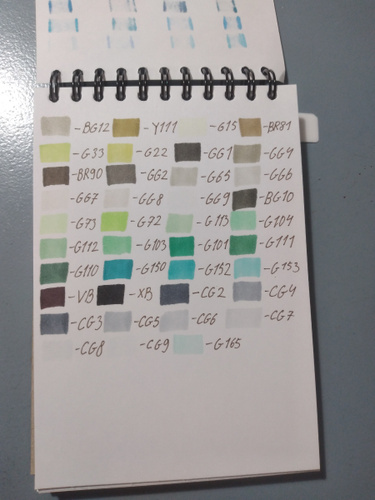 -BG12 -Y111 -G15 -BR81
-G33 -G22 -GG1 -GG4
-BR90 -GG2 -G65 -GG6
-GG7 -GG8 -GG9 -BG10
-G73 -G72 -G113 -G104
-G112 -G103 -G101 -G111
-G110 -G150 -G152 -G153
-VB -XB -CG2 -CG4
-CG3 -CG5 -CG6 -CG7
-CG8 -CG9 -G165